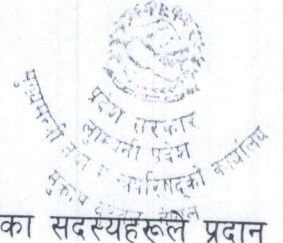 प्रदेश सरकार
लुम्बिनी प्रदेश
मुख्यमन्त्री तथा मन्त्रिपरिषद्को कार्यालय
का सदस्यहरूले प्रदान